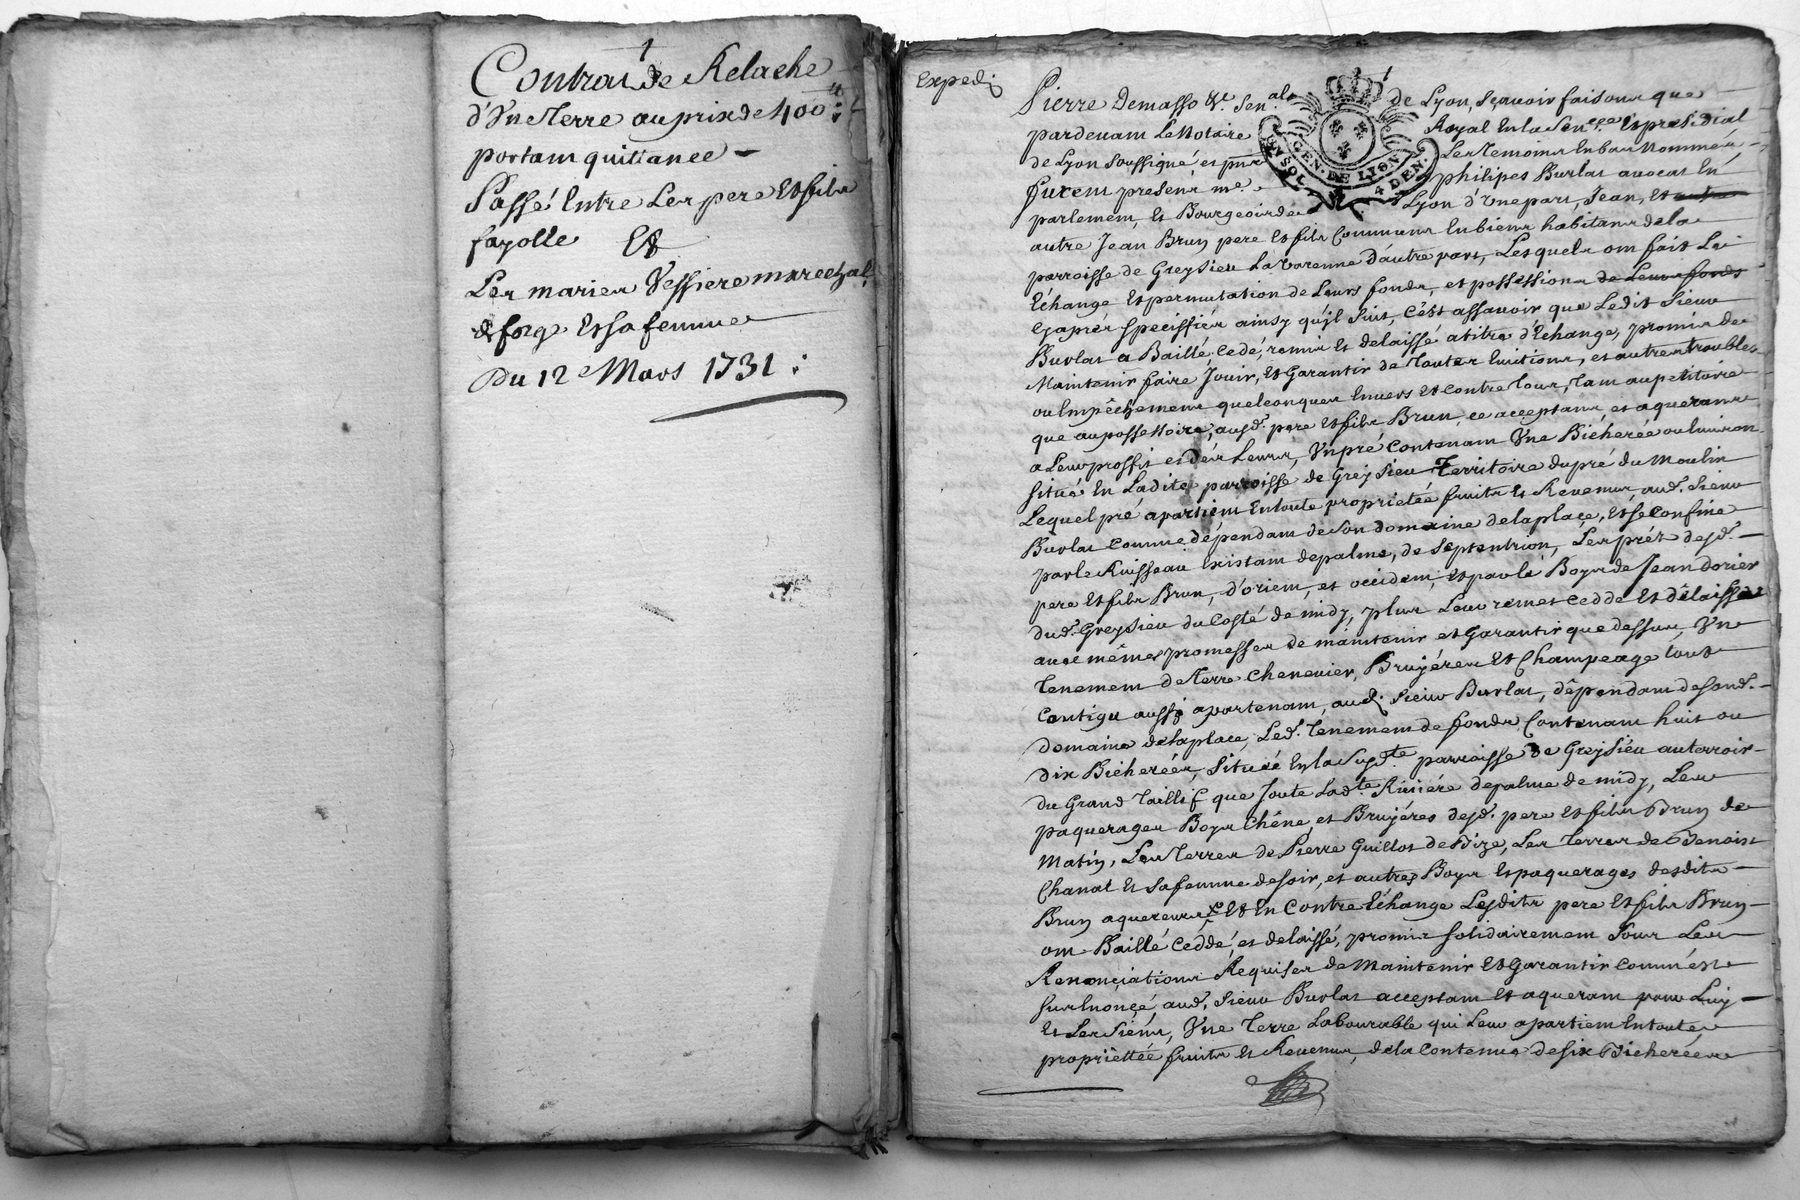 1
Contrat de Relache
d'Une Terre au prix de 400 ͭͭ :
portant quittance –
Passé Entre Les pere Et fils
fayolle Et
Les mariez Vessiere marechal
de forge Et sa femme
Du 12e Mars 1731 :
Expedié
1
Pierre Demasso &c. Senal. de Lyon, sçavoir faisons que
pardevant Le Notaire Royal En la Senee. Et presidial
de Lyon soussigné et pnt Les Temoins En bas Nommés
furent presents me. philipes Burlat avocat En
parlement, Et Bourgeois de Lyon d'Une part, Jean, Et autre
autre Jean Brun pere Et fils Communs En biens habitans de la
parroisse de Greysieu La Varenne d'autre part, Lesquels ont fait Les
Echange Et permutation de Leurs fonds, et possessions de Leurs fonds
Cy aprés speciffiés ainsy qu'jl suit, C'est assavoir que Ledit Sieur
Burlat a Baillé, Cedé, remis Et delaissé a titre d'Echange, promis de
Maintenir faire Jouir, Et Garantir de Toutes Evictions, et autres troubles
ou Empêchemens quelconques Envers Et Contre Tous, Tant au petitoire
que au possessoire, ausd. pere Et fils Brun, ce acceptans et aquerans
a Leur proffit et des Leurs, Un pré Contenant Une Bicherée ou Environ
situé En Ladite parroisse de Greysieu Territoire du pré du Moulin
Lequel pré apartient En toute proprieteé fruits Et Revenus aud. Sieur
Burlat Comme dépendant de son domaine de la place, Et se Confine
par le Ruisseau Existant de palme, de septentrion, Les prés desd. –
pere Et fils Brun, d'orient, et occident, Et par le Boys de Jean dorier
dud. Greysieu du Costé de midy, plus Leur remet Cedde Et délaisse
aux mêmes promesses de maintenir et Garantir que dessus, Un
Tenement de Terre Chenevier, Bruyéres Et Champéage tout
Contigu aussy apartenant, aud. Sieur Burlat, dépendant de sond. –
domaine de la place, Led. Tenement de fonds Contenant huit ou
dix Bicherées, Situé En la susdte. parroisse de Greysieu au terroir
du Grand Taillis que Joute Ladte. Riviére de palme de midy, Les
paquerages Boys Chêne, et Bruyéres desd. pere Et fils Brun de
Matin, Les Terres de Pierre Guillot de Bize, Les Terres de Benoist
Chanal Et sa femme de soir, et autres Boys Et paquerages desdits
Brun aquereurs, Et En Contre Echange Lesdits pere Et fils Brun
ont Baillé Ceddé, et delaissé, promis solidairement sous Les
Renonciations Requises de Maintenir Et Garantir Comme est
sus Enoncé, aud. Sieur Burlat acceptant Et aquerant pour Luy
Et Les siens, Une Terre Labourable qui Leur apartient En toute
proprietée fruits Et Revenus, de la Contenue de six Bicherées
GEN. DE LYON
4 DEN.